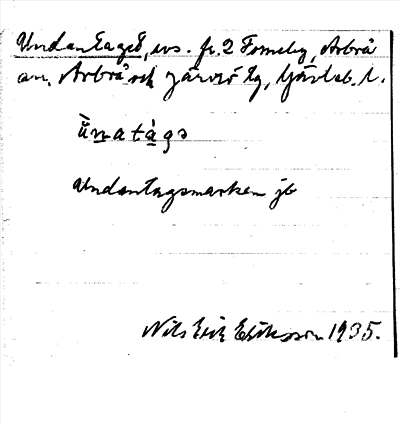 Undantaget, ns. fr. 2 Forneby, Arbrå
sn, Arbrå och Järvsö tg, Gävleb. l.
ùnatàgs
Undantagsmarken jb
Nils Erik Eriksson 1935.